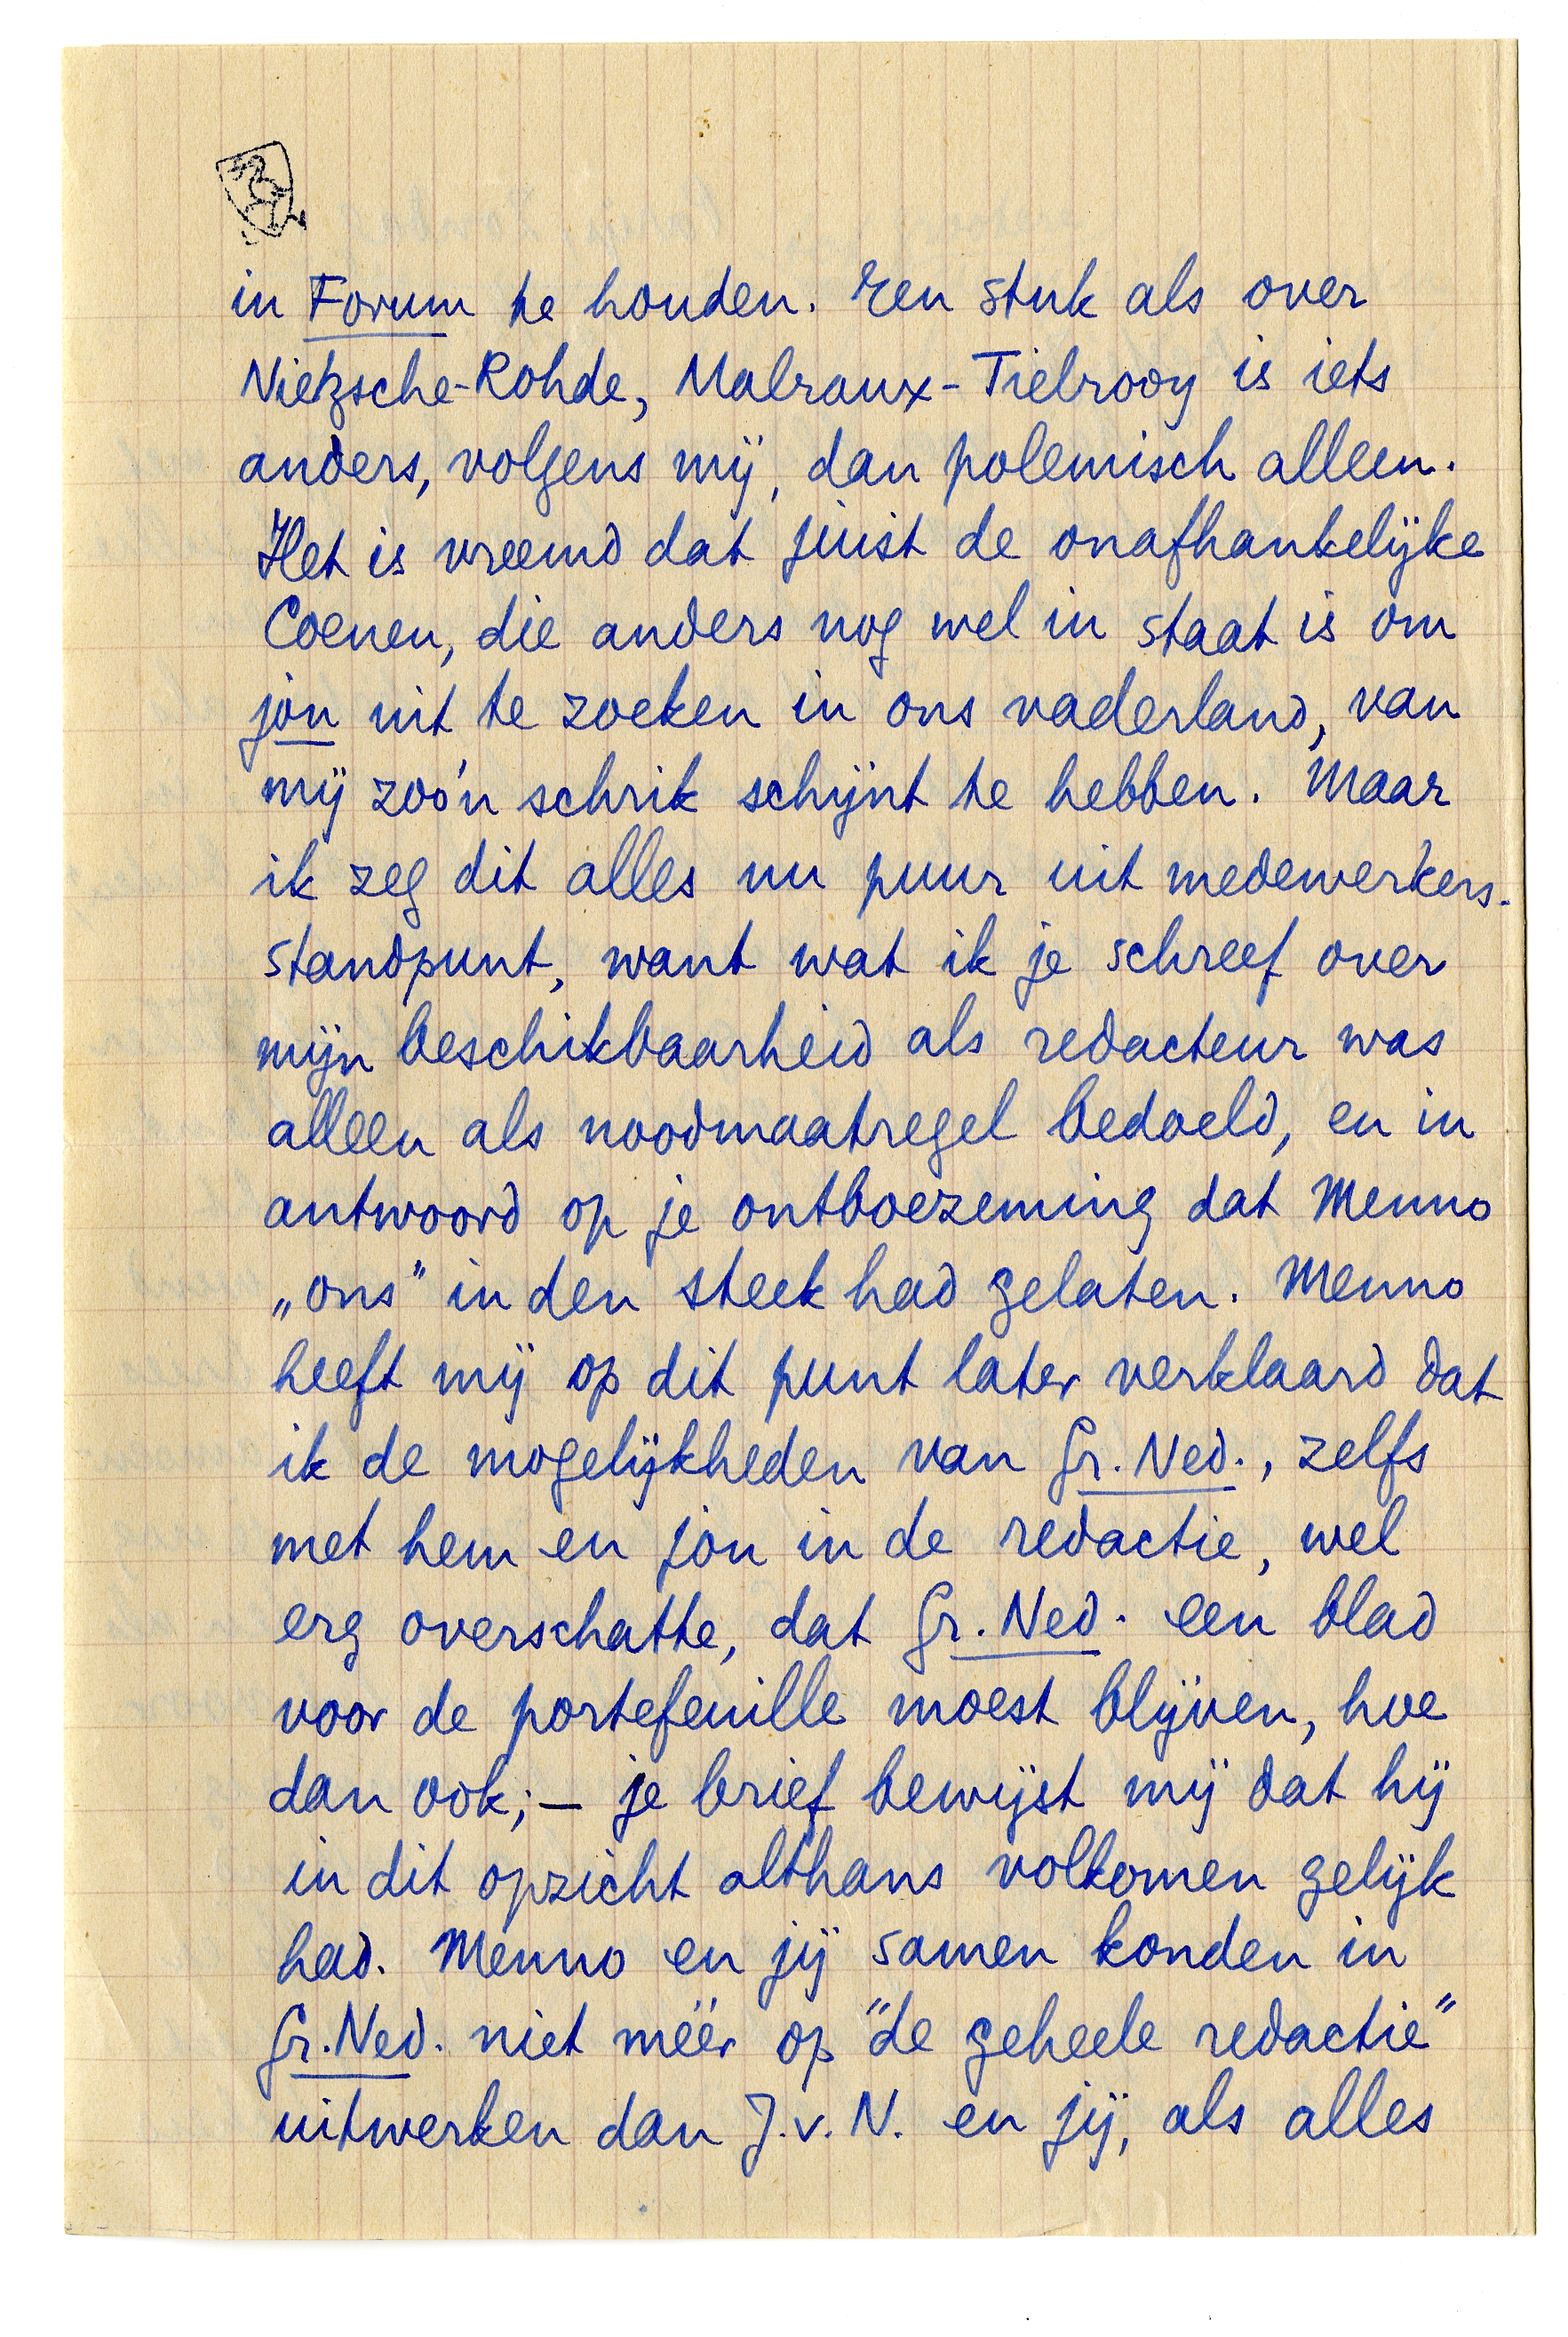 in Forum te houden. Een stuk als over
Nietzsche-Rohde, Malraux-Tielrooy is iets
anders, volgens mij, dan polemisch alleen.
Het is vreemd dat juist de onafhankelijke
Coenen, die anders nog wel in staat is om
jou uit te zoeken in ons vaderland, van
mij zoo'n schrik schijnt te hebben. Maar
ik zeg dit alles nu puur uit medewerkers-
standpunt, want wat ik je schreef over
mijn beschikbaarheid als redacteur was
alleen als noodmaatregel bedoeld, en in
antwoord op je ontboezeming dat Menno
„ons” in den steek had gelaten. Menno
heeft mij op dit punt later verklaard dat
ik de mogelijkheden van Gr. Ned., zelfs
met hem en jou in de redactie, wel
erg overschatte, dat Gr. Ned. een blad
voor de portefeuille moest blijven, hoe
dan ook; – je brief bewijst mij dat hij
in dit opzicht althans volkomen gelijk
had. Menno en jij samen konden in
Gr. Ned. niet méér op "de geheele redactie"
uitwerken dan J. v. N. en jij, als alles